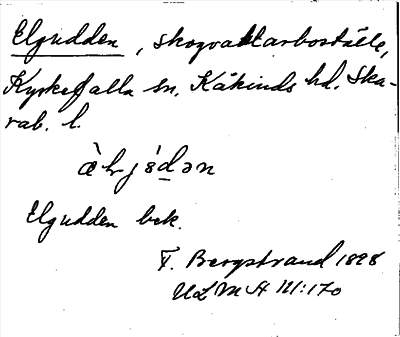 Elgudden, skogvaktarboställe,
Kyrkefalla sn. Kåkinds hd. Ska-
rab. l.
Elgudden bek.
F. Bergstrand 1898
ULMA 111:170